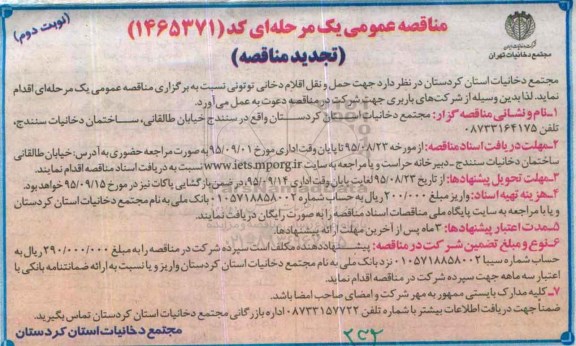 مناقصه عمومی یک مرحله‌ای کد (۱۴۶۵۳۷۱)
(نوبت دوم)
(تجدید مناقصه)
مجتمع دخانیات تهران
مجتمع دخانیات استان کردستان در نظر دارد جهت حمل و نقل اقلام دخانی توتونی نسبت به برگزاری مناقصه عمومی یک مرحله‌ای اقدام
نماید. لذا بدین وسیله از شرکت‌های باربری جهت شرکت در مناقصه دعوت به عمل می‌آورد.
۱ـ نام و نشانی مناقصه گزار: مجتمع دخانیات استان کردستان واقع در سنندج خیابان طالقانی، ساختمان دخانیات سنندج،
تلفن ۰۸۷۳۳۱۶۴۱۷۵
۲ـ مهلت دریافت اسناد مناقصه: از مورخه ۹۵/۰۸/۲۳ تا پایان وقت اداری مورخ ۹۵/۰۹/۰۱ به صورت مراجعه حضوری به آدرس: خیابان طالقانی
ساختمان دخانیات سنندج ـ دبیرخانه حراست و یا مراجعه به سایت www.iets.mporg.ir نسبت به دریافت اسناد مناقصه اقدام نمایند.
۳ـ مهلت تحویل پیشنهادها: از تاریخ ۹۵/۰۸/۲۳ لغایت پایان وقت اداری ۹۵/۰۹/۱۴، در ضمن بازگشایی پاکات نیز در مورخ ۹۵/۰۹/۱۵ خواهد بود.
۴ـ هزینه تهیه اسناد: واریز مبلغ ۲۰۰/۰۰۰ ریال به حساب شماره ۰۱۰۵۷۱۸۸۵۸۰۰۲ بانک ملی به نام مجتمع دخانیات استان کردستان
و یا با مراجعه به سایت پایگاه ملی مناقصات اسناد مناقصه را به صورت رایگان دریافت نمایند.
۵ـ مدت اعتبار پیشنهادها: ۳ ماه پس از آخرین مهلت ارائه پیشنهادها.
۶ـ نوع و مبلغ تضمین شرکت در مناقصه: پیشنهاددهنده مکلف است سپرده شرکت در مناقصه را به مبلغ ۲۹۰/۰۰۰/۰۰۰ ریال به
حساب شماره سیبا ۰۱۰۵۷۱۸۸۵۸۰۰۲ نزد بانک ملی به نام مجتمع دخانیات استان کردستان واریز و یا نسبت به ارائه ضمانتنامه بانکی با
اعتبار سه ماهه جهت سپرده شرکت در مناقصه اقدام نماید.
۷ـ کلیه مدارک بایستی ممهور به مهر شرکت و امضای صاحب امضا باشد.
ضمناً جهت دریافت اطلاعات بیشتر با شماره تلفن ۰۸۷۳۳۱۵۷۷۲۲ اداره بازرگانی مجتمع دخانیات استان کردستان تماس بگیرید.
مجتمع دخانیات استان کردستان